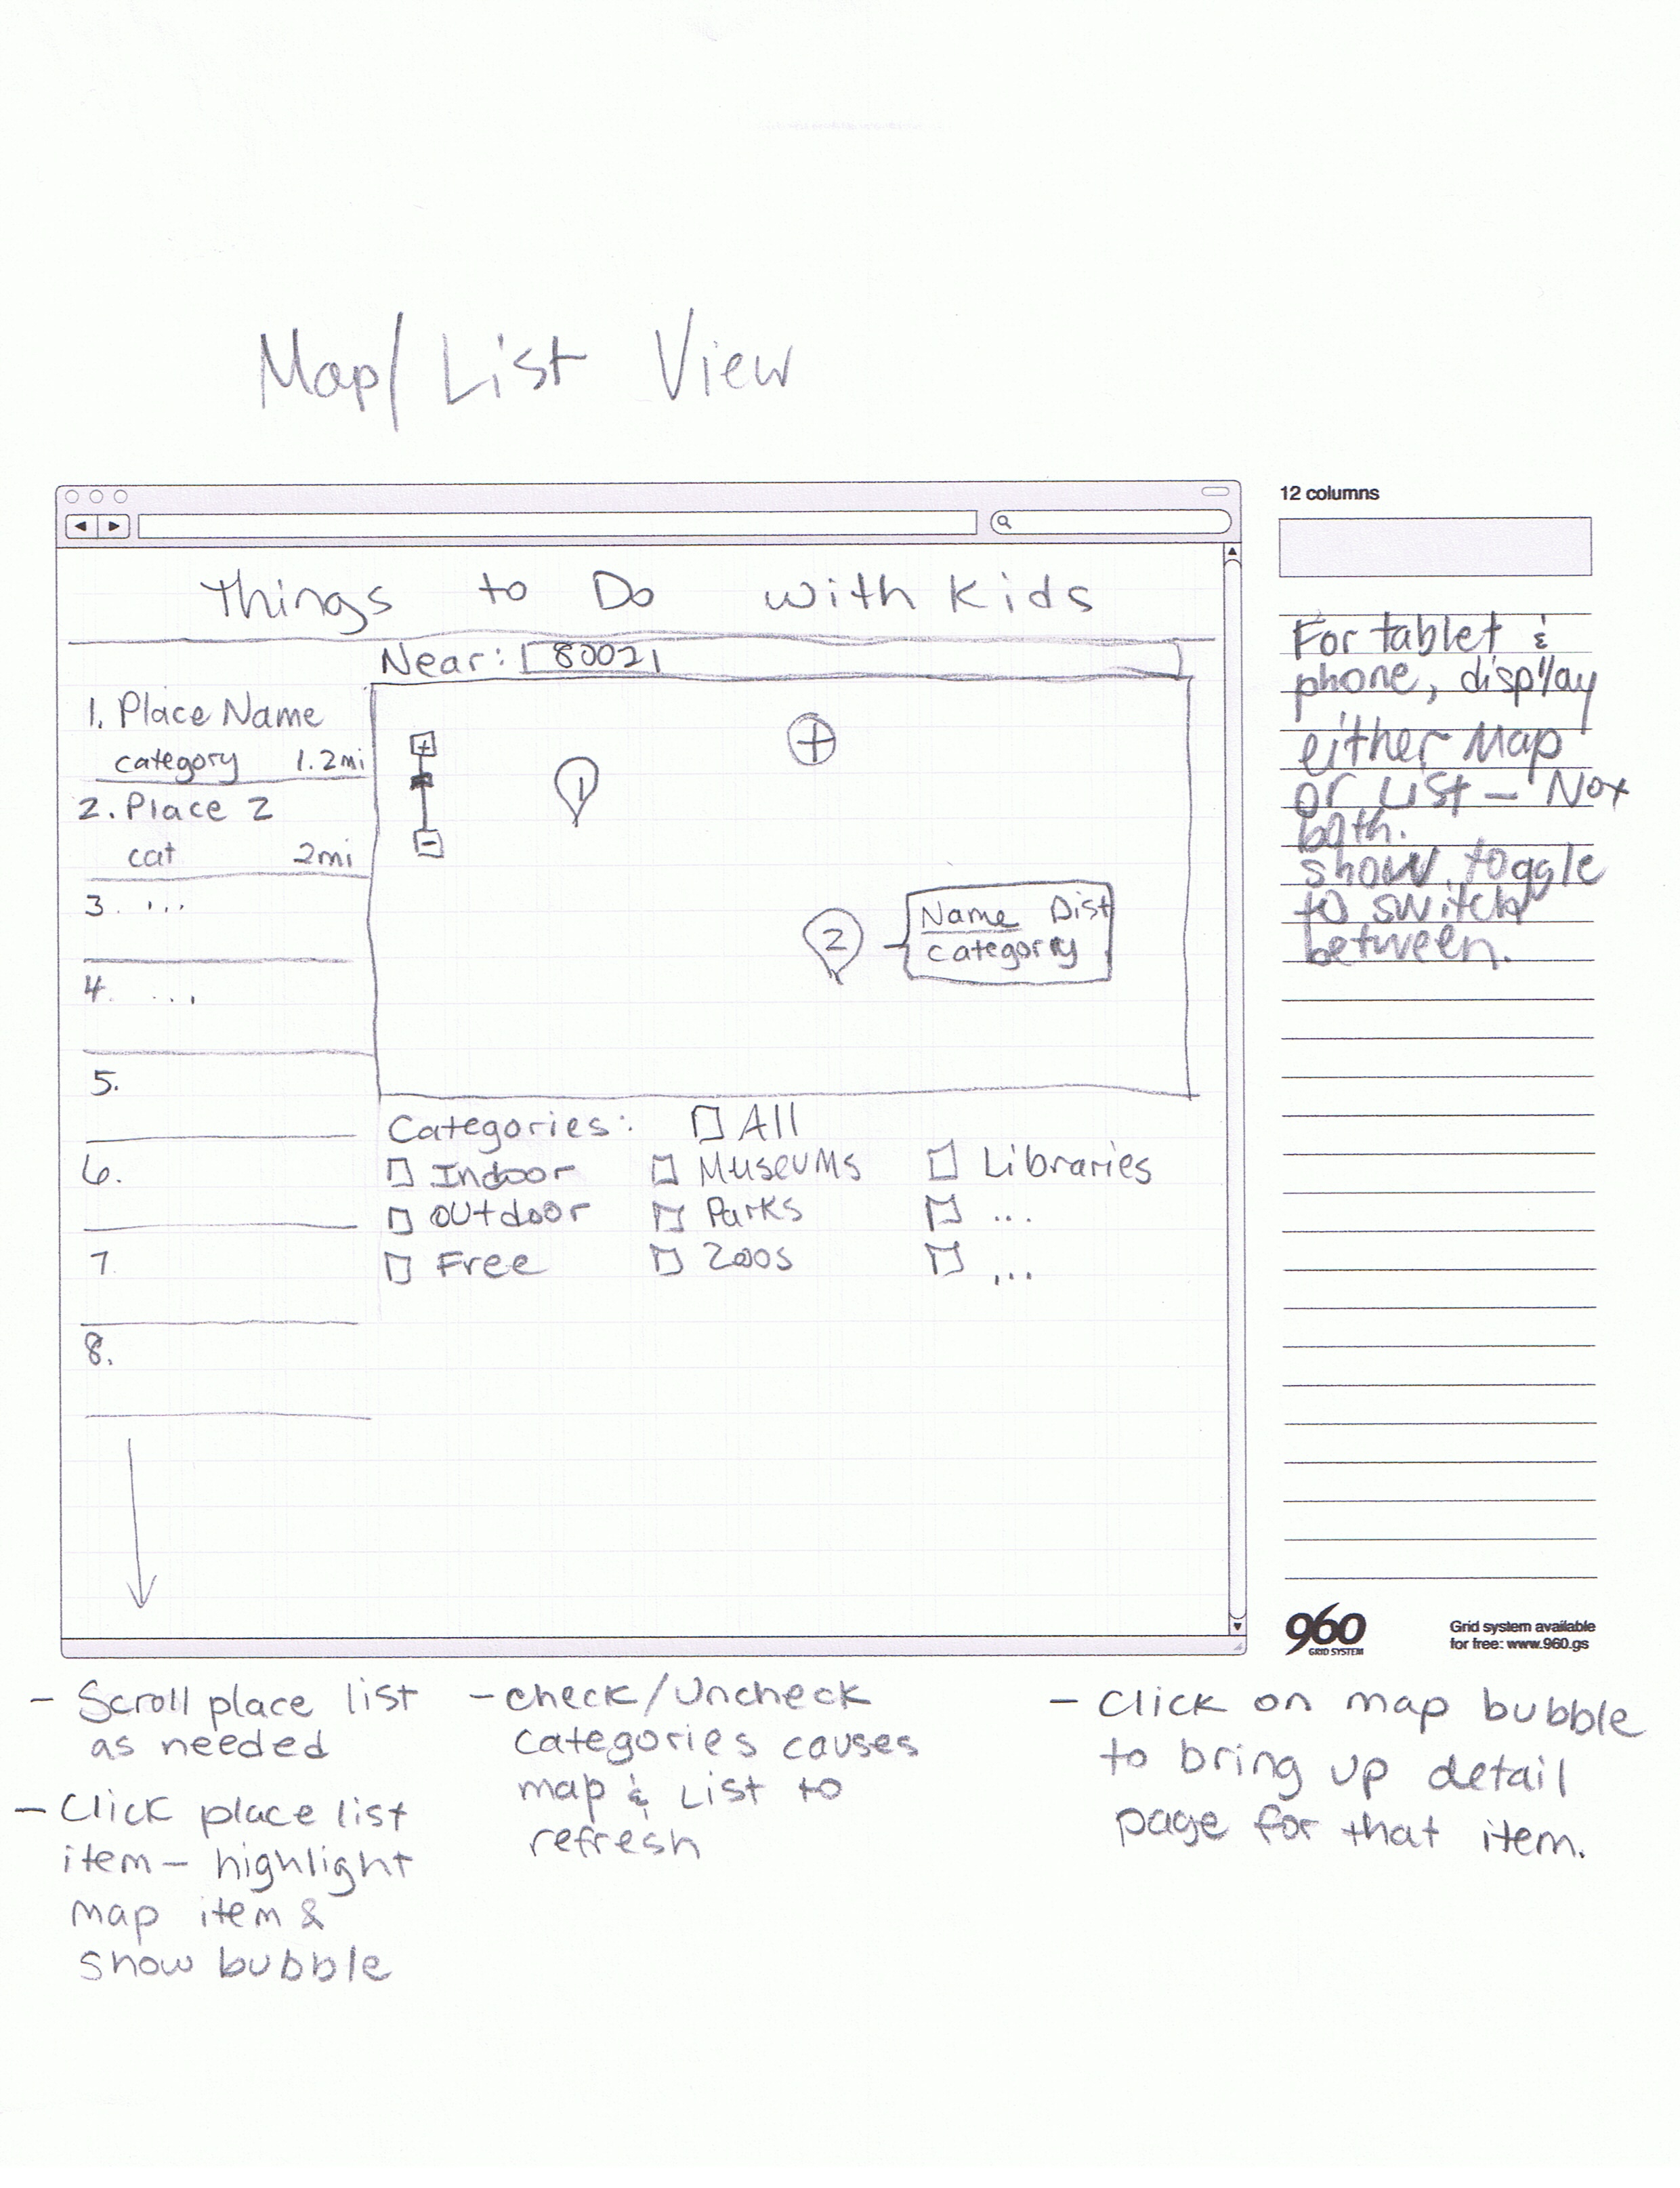 Map/ List View
12 columns
Things to Do with Kids
Near: 80021
1. Place Name
category 1.2mi
2. Place 2
cat 2mi
3. ...
4. ...
5.
6.
7.
8.
+
-
1
+
2
Name Dist
category
Categories: All
Indoor Museums Libraries
Outdoor Parks ...
Free Zoos ...
For tablet &
phone, display
either Map
or List - Not
both.
show toggle
to switch
between.
960
GRID SYSTEM
Grid system available
for free: www.960.gs
- Scroll place list
as needed
- Click place list
item - highlight
map item &
show bubble
- check/Uncheck
categories causes
map & List to
refresh
- Click on map bubble
to bring up detail
page for that item.